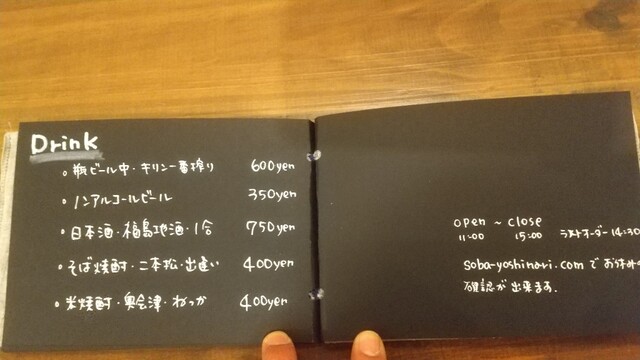 Drink
。瓶ビール中・キリン一番搾り 600yen
。ノンアルコールビール 350yen
。日本酒・福島地酒・1合 750yen
。そば焼酎・二本松・出逢い 400yen
。米焼酎・奥会津・ねっか 400yen
open ~ close
11:00 15:00 ラストオーダー14:30
soba-yoshinari.comでお休み
確認が出来ます.